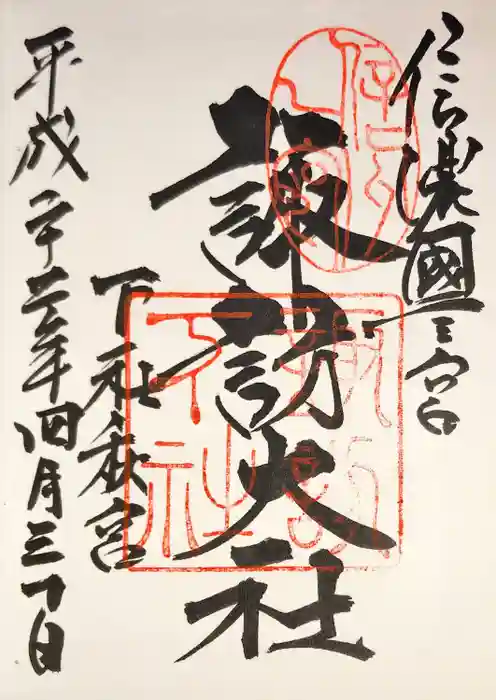 信濃國一之宮
諏訪大社
下社秋宮
平成二十二年四月三十日
諏訪
下社